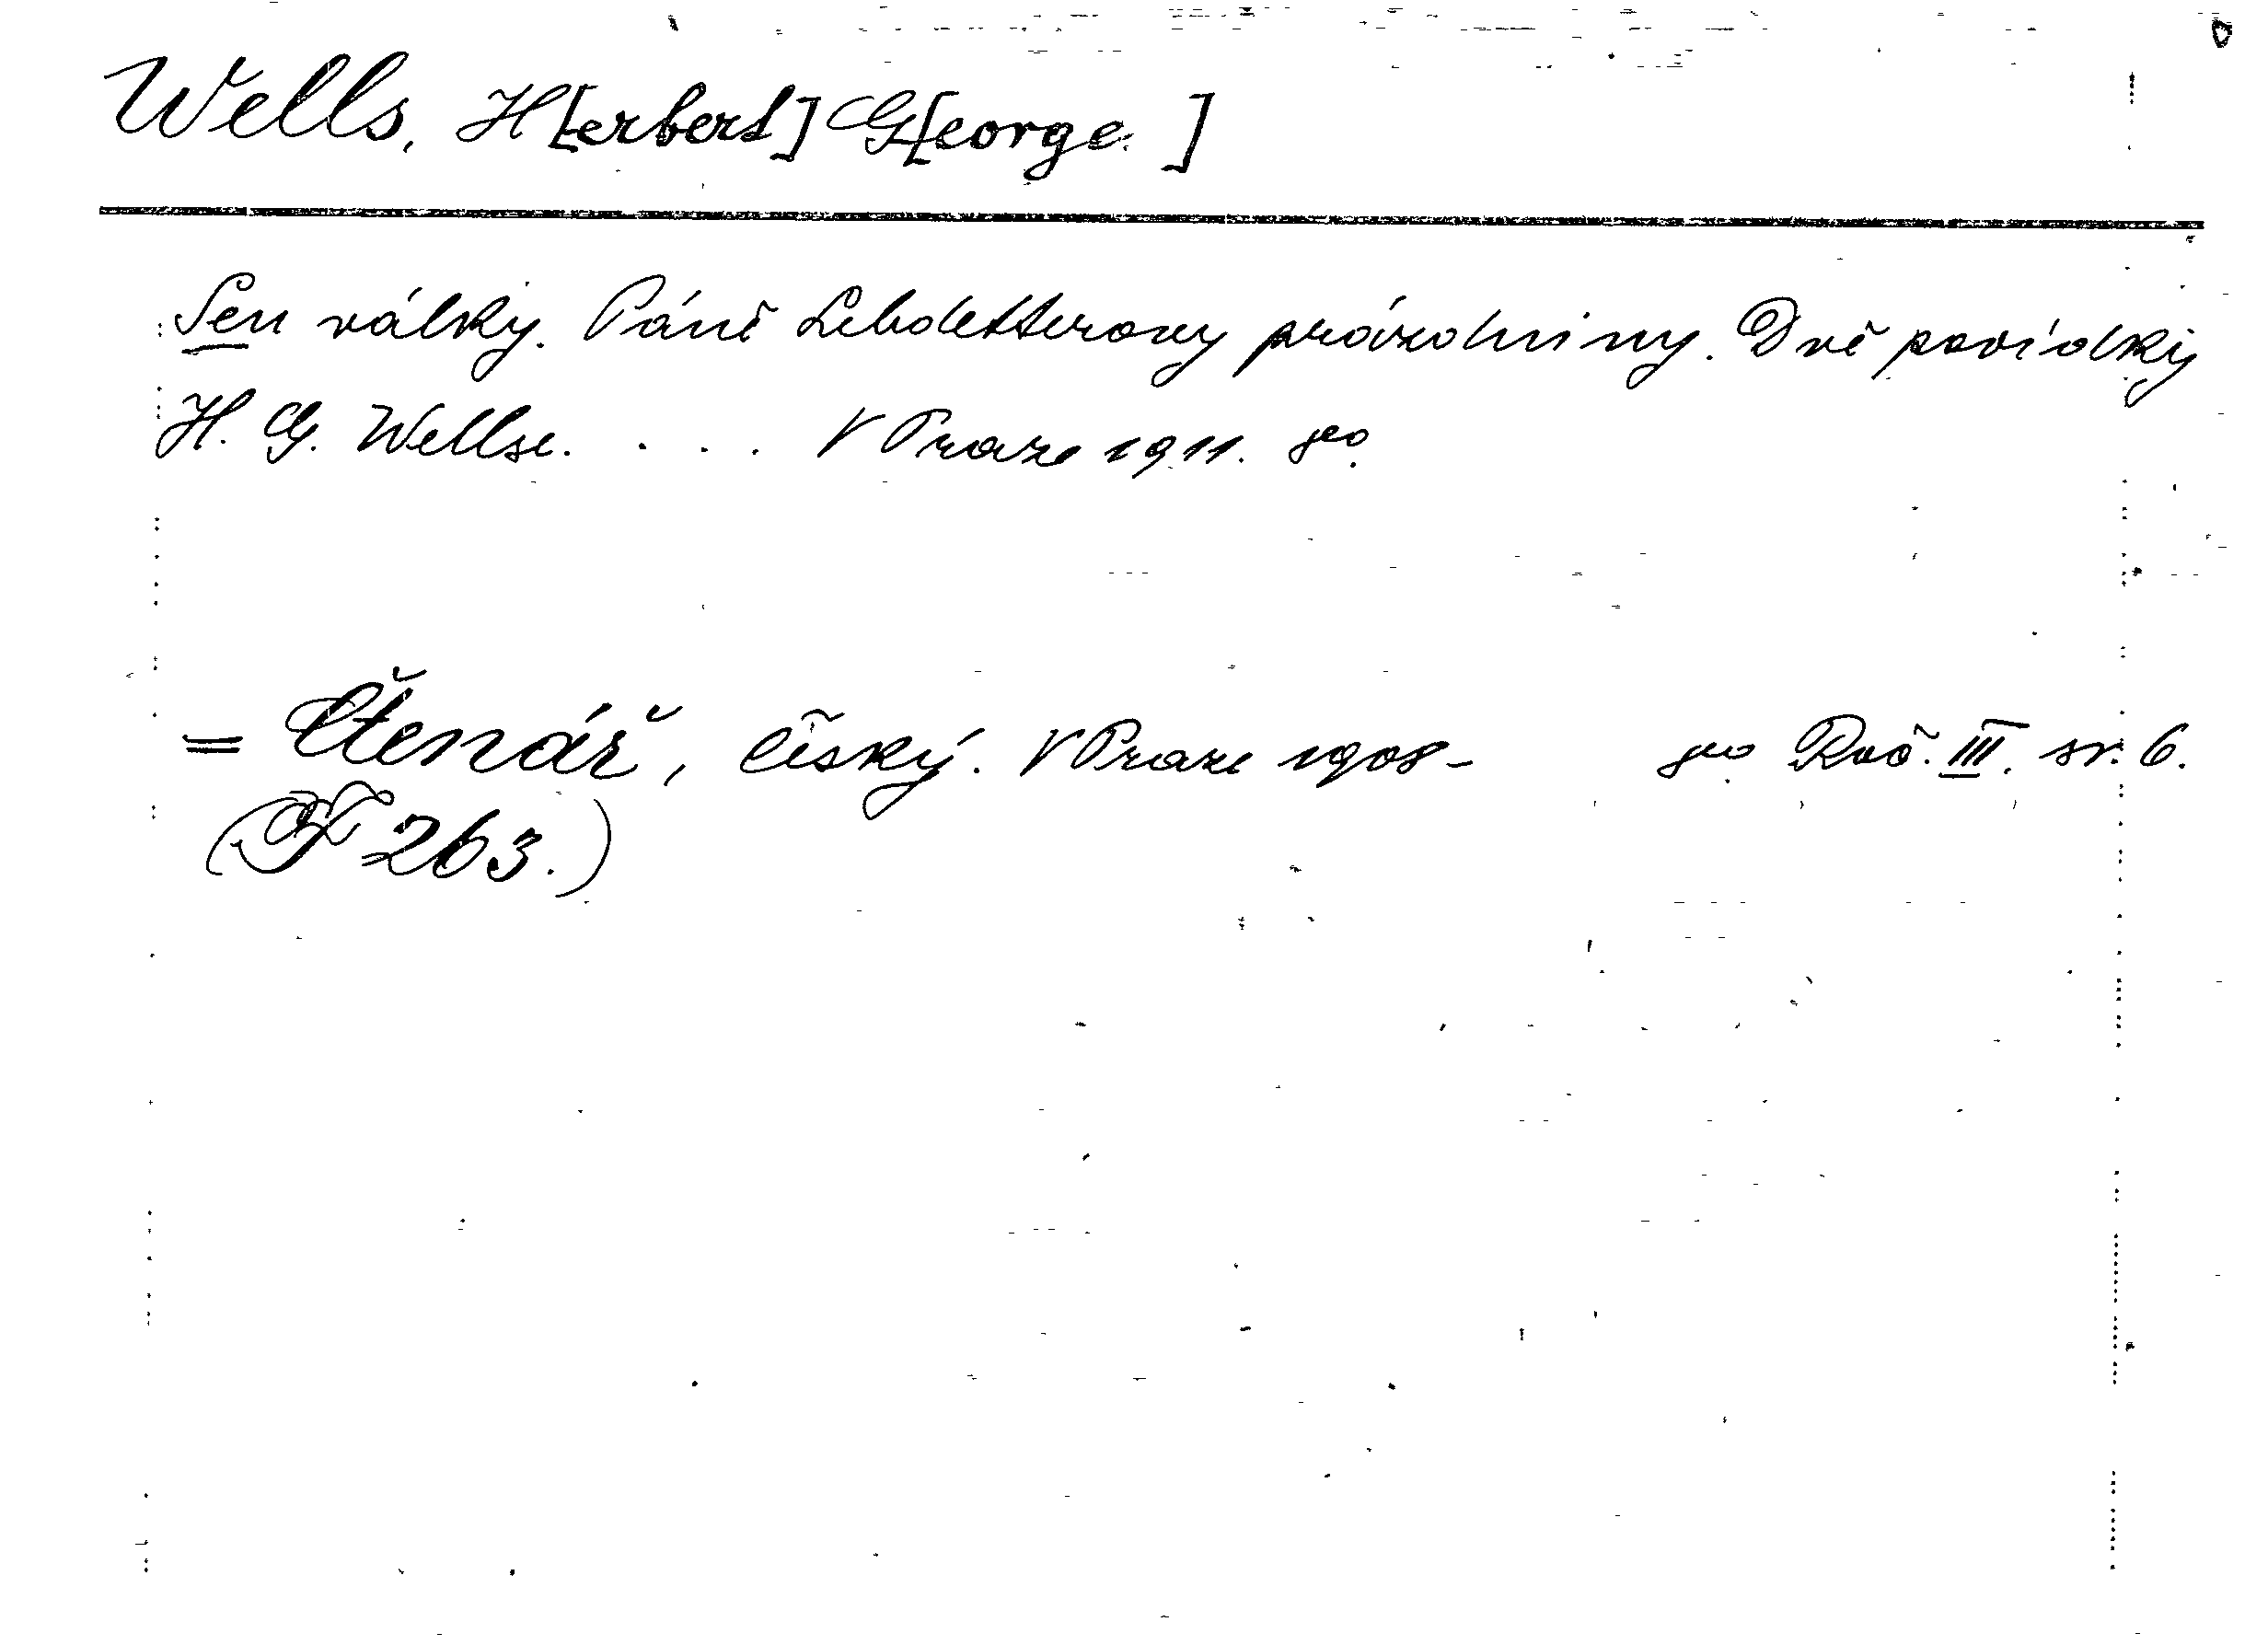 Wells, H[erbert] G[eorge.]
Sen války. Páně Lebdetterovy prázdniny. Dvě povídky
H. G. Wellse. . . . V Praze 1911. 8°.
= Čtenář, český. V Praze 1908- 8° Roč. III. sv. 6.
(F 263.)